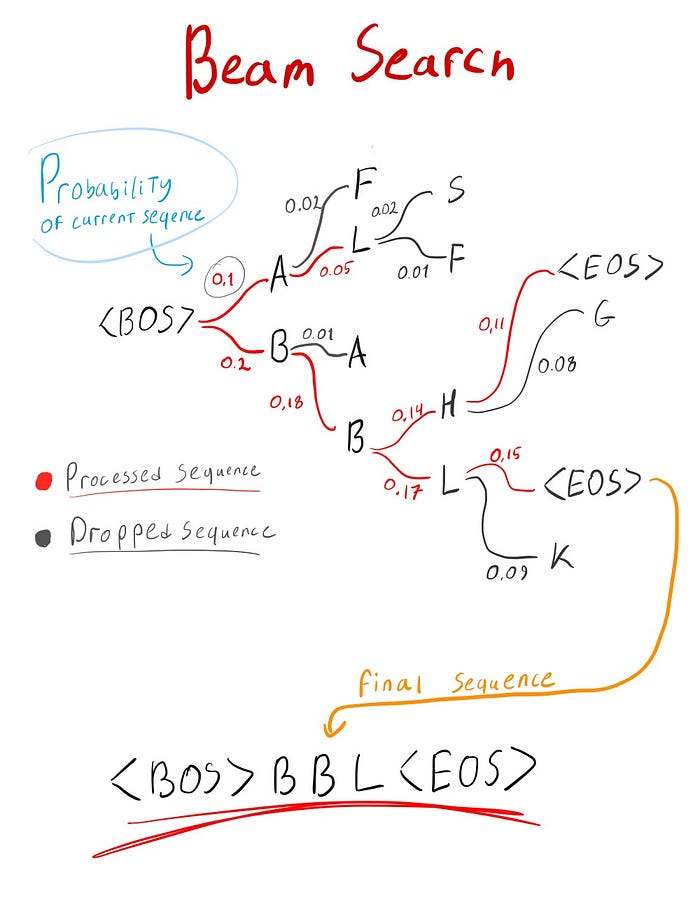 Beam Search
Probability
of current seqence
F
0.02
S
0.02
L
A
0.05
0.01
F
0,1
<EOS>
<BOS>
G
0,11
B
0.01
A
0.2
0.08
0,18
H
0,14
B
0.15
Processed Sequence
L
<EOS>
0.17
Dropped Sequence
K
0,09
final sequence
<BOS> B B L <EOS>